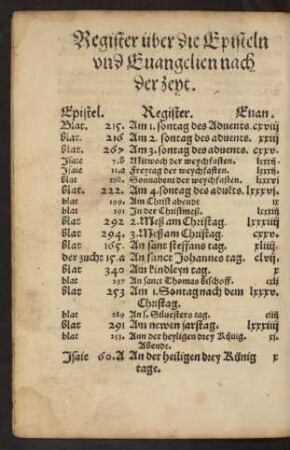 Register über die Episteln
vnd Euangelien nach
der zeyt.
Epistel. Register. Euan.
Blat. 215. Am 1. sontag des Aduents. cxviij
blat. 216 Am 2. sontag des aduents. lxxij
blat. 267 Am 3. sontag des aduents. cxxv.
Isaie 7.b Mitwoch der weychfasten. lxxij.
Isaie 11.a Freytag der weychfasten. lxxij.
blat 228. Sonnabent der weychfasten. lxxvi.
blat. 222. Am 4. sontag des adults. lxxxvi.
blat 199. Am Christ abendt ix
blat 201 In der Christmeß. lxxij.
blat 292 2. Meß am Christag. lxxxiiij
blat 294. 3. Meß am Christag. cxxv.
blat 165. An sant steffans tag. xliiij
der zucht 15.a An sanct Johannes tag. clvij.
blat 340 Am kindleyn tag. x
blat 297 An sanct Thomas bischoff. cxij
blat 253 Am 1. Sontag nach dem lxxxv.
Christag.
blat 289 An s. Siluesters tag. ciij
blat 291 Am newen jarstag. lxxxiiij
blat 253. An der heyligen drey Künig xi.
Abendt.
Isaie 60.A An der heiligen drey Künig x
tage.